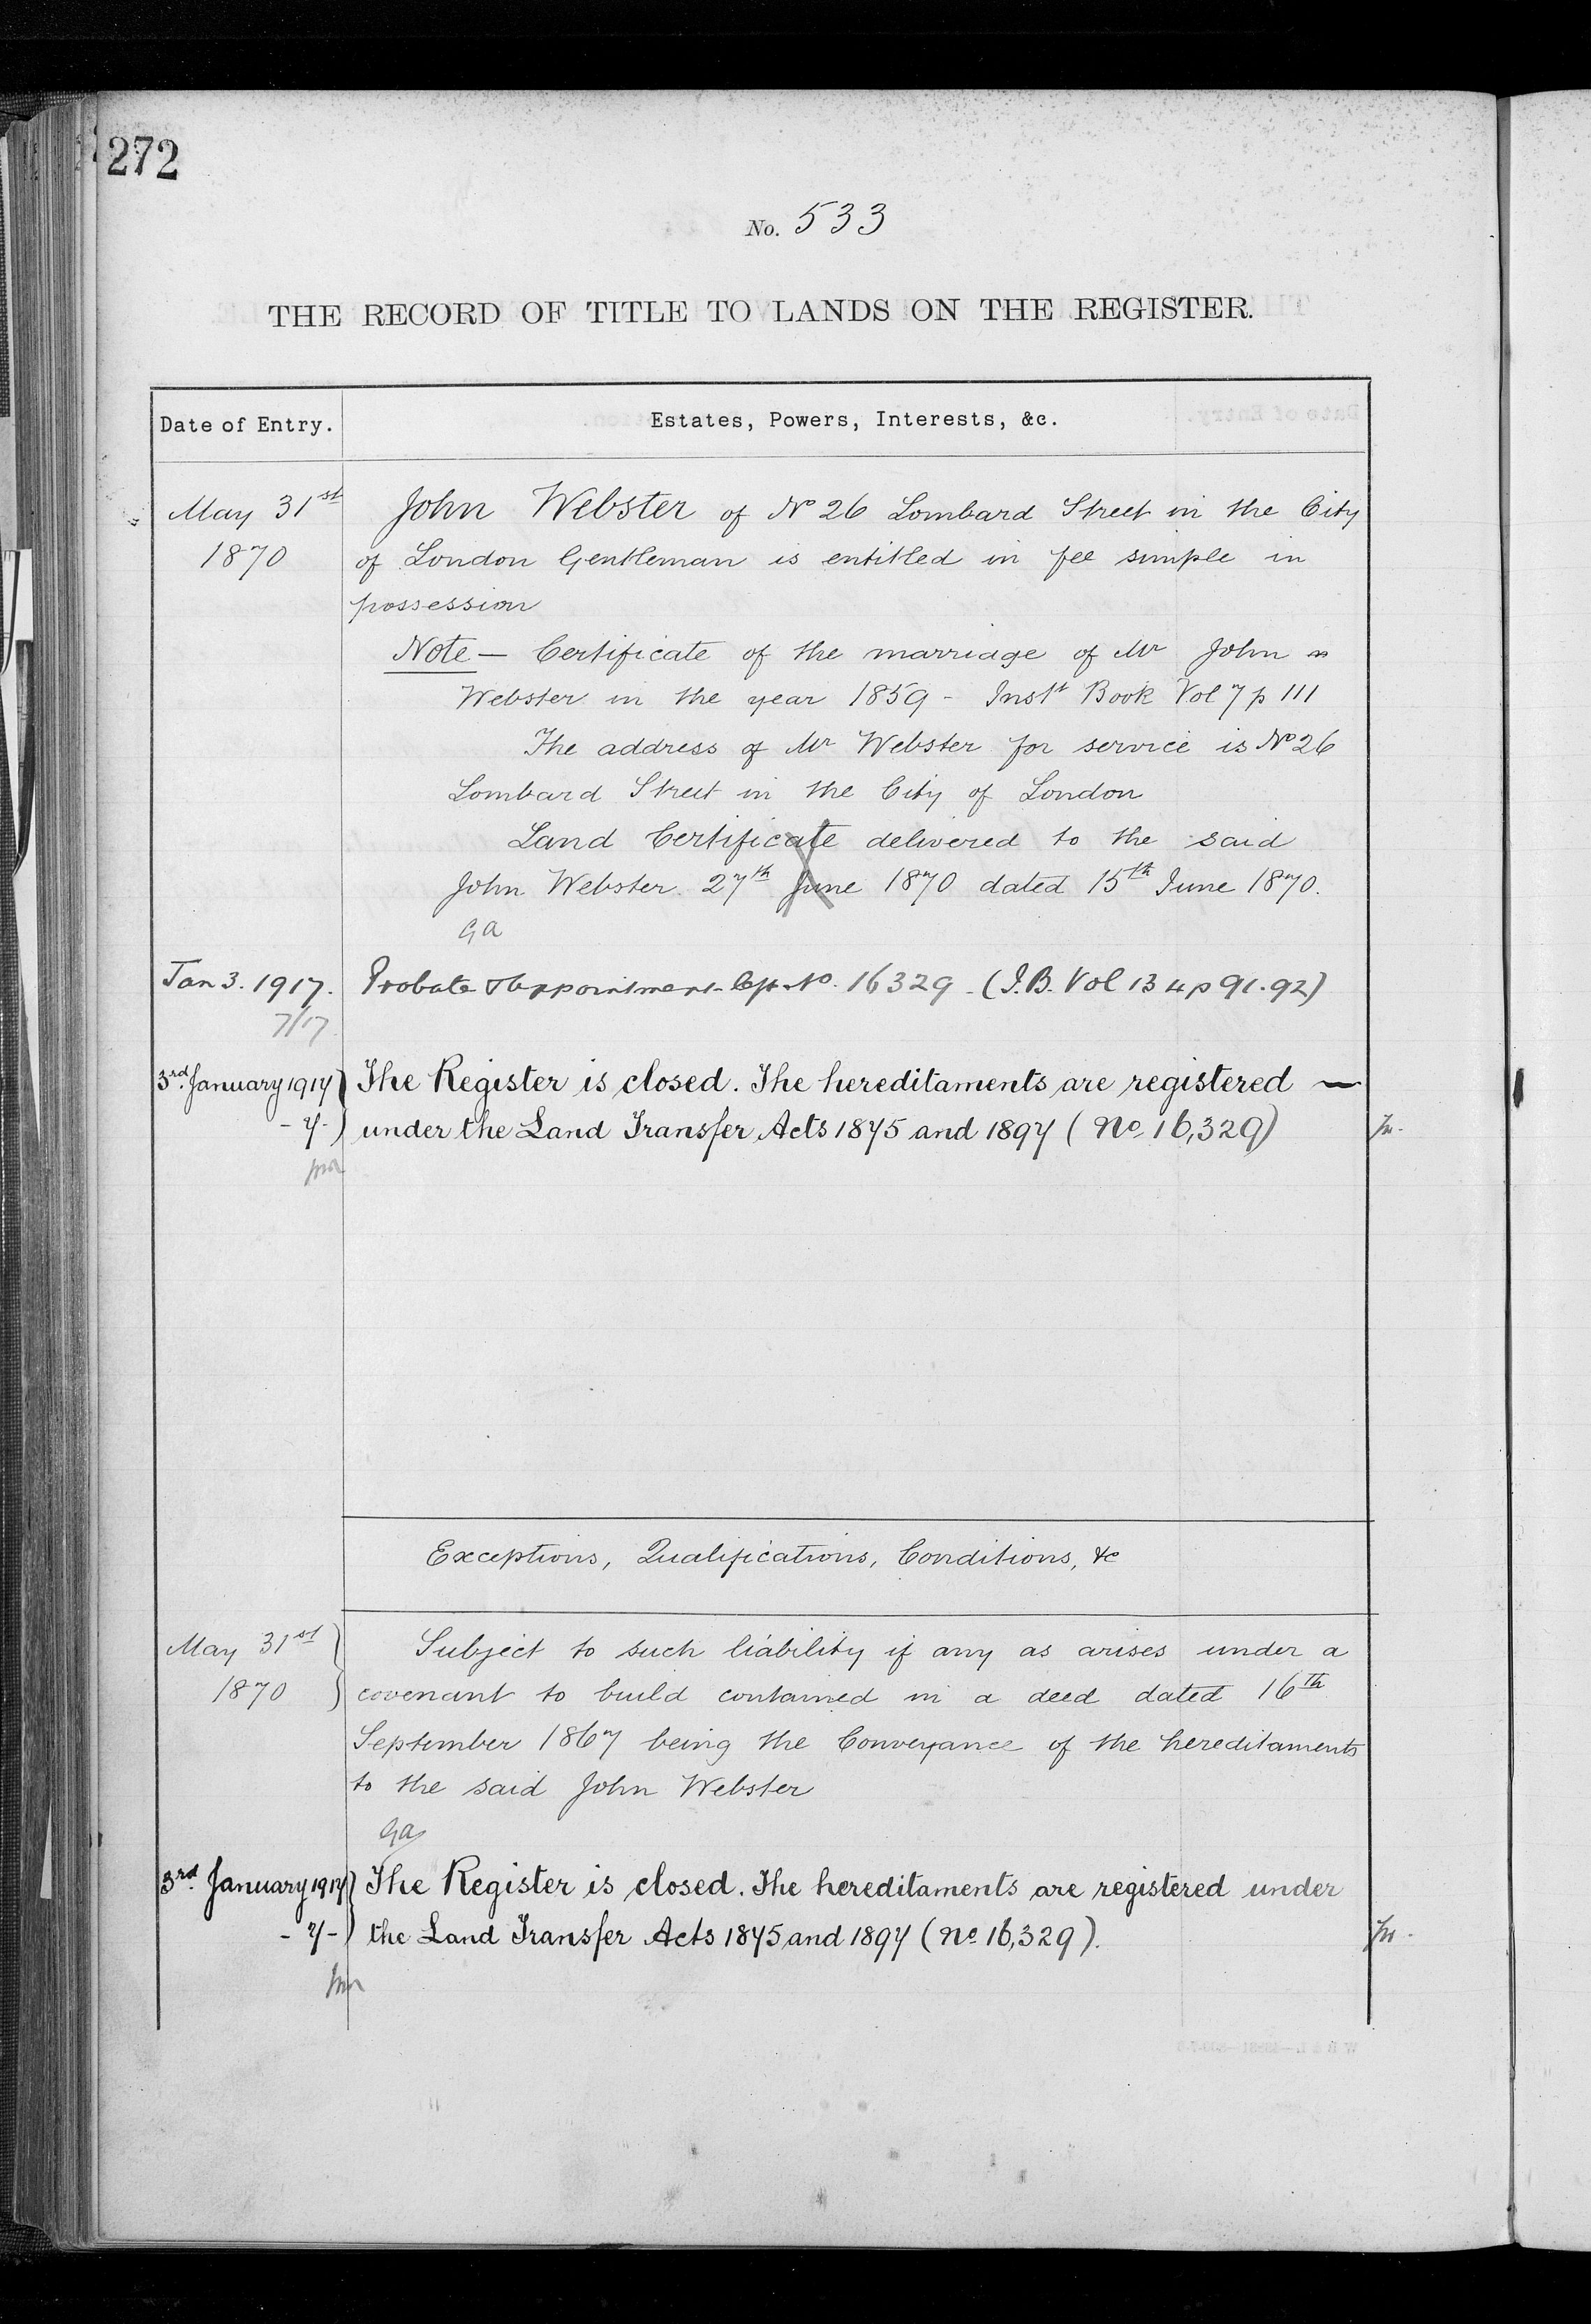 272
No. 533
THE RECORD OF TITLE TO LANDS ON THE REGISTER.
Date of Entry.
Estates, Powers, Interests, &c.
May 31st
1870
John Webster of No 26 Lombard Street in the City
of London Gentleman is entitled in fee simple in
possession
Note — Certificate of the marriage of Mr John
Webster in the year 1859 - Instt Book Vol 7 p 111
The address of Mr Webster for service is No 26
Lombard Street in the City of London
Land Certificate delivered to the said
John Webster 27th June 1870 dated 15th June 1870.
GA
Jan 3. 1917.
7/17
Probate & Appointment Cop No. 16329 - (I.B. Vol 134 p 91.92)
3rd. January 1917
- 7 -
The Register is closed. The hereditaments are registered —
under the Land Transfer Acts 1875 and 1897 (No. 16,329)
Exceptions, Qualifications, Conditions, &c
May 31st
1870
Subject to such liability if any as arises under a
covenant to build contained in a deed dated 16th
September 1867 being the Conveyance of the hereditaments
to the said John Webster
GA
3rd. January 1917
- 7 -
The Register is closed. The hereditaments are registered under
the Land Transfer Acts 1875 and 1897 (No 16,329).